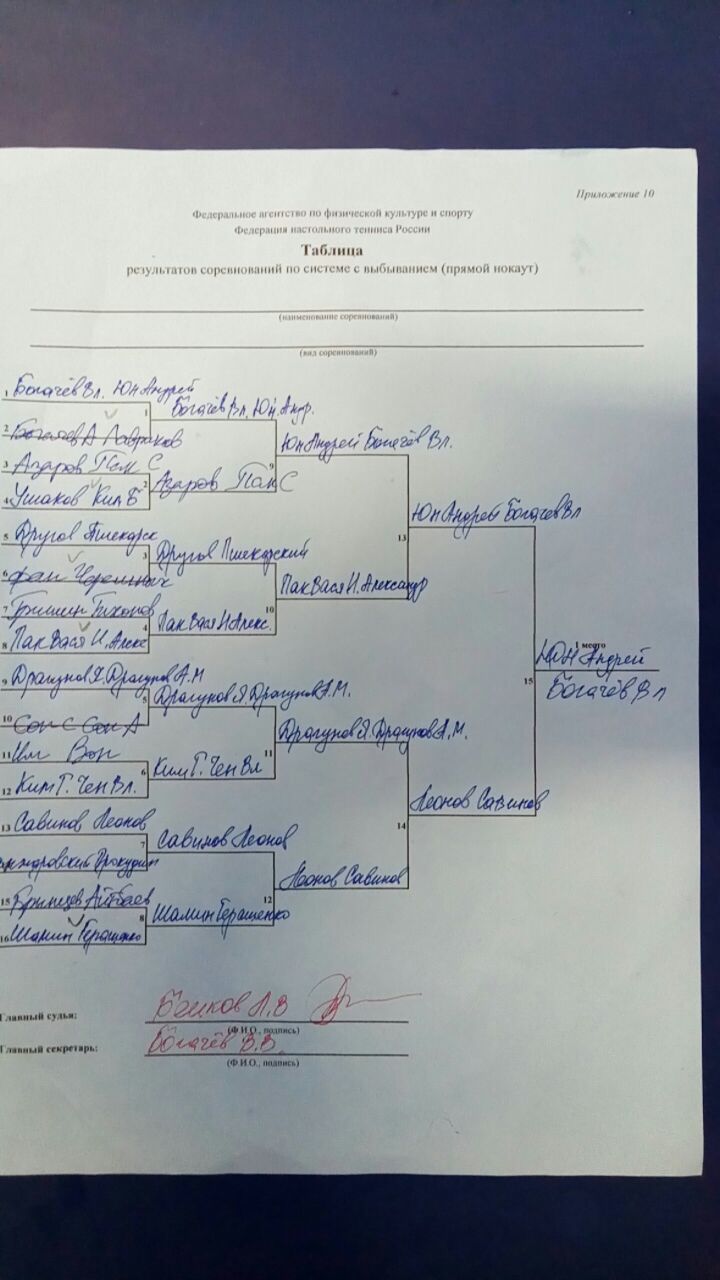 Приложение 10
Федеральное агентство по физической культуре и спорту
Федерация настольного тенниса России
Таблица
результатов соревнований по системе с выбыванием (прямой нокаут)
(наименование соревнований)
(вид соревнований)
1 Богачёв Вл. Юн Андрей
2 Лавраков
3 Азаров Пак С
4 Ушаков Ким Б
5 Другов
6 Фан
7 Гришин Тихонов
8 Пак Вася И. Алекс
9 Драгунов Я. Драгунов А. М
10 Сон С Сон А
11
12 Ким Г. Чен Вл.
13 Савинов Леонов
Прокудин
15 Айтбаев
16 Шалин Геращенко
1 Богачёв Вл. Юн. Андр.
2 Азаров Пак С
3 Другов Пшекорский
4 Пак Вася И Алекс.
5 Драгунов Я. Драгунов А. М.
6 Ким Г. Чен Вл
7 Савинов Леонов
8 Шалин Геращенко
9 Юн Андрей Богачёв Вл.
10 Пак Вася И. Александр
11 Драгунов Я. Драгунов А. М.
12 Леонов Савинов
13 Юн Андрей Богачёв Вл
14 Леонов Савинов
1 место
15 Юн Андрей
Богачёв Вл
Главный судья:
(Ф.И.О., подпись)
Главный секретарь: Богачёв В.В.
(Ф.И.О., подпись)